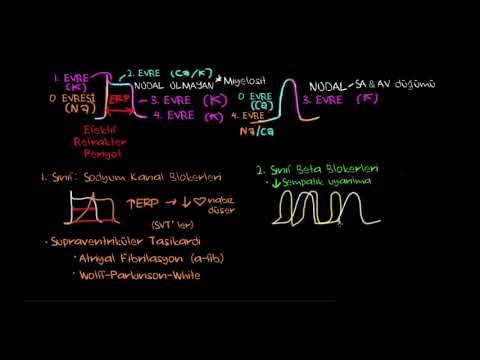 1. EVRE (K)
2. EVRE (Ca/K)
NODAL OLMAYAN * Miyelosit
0 EVRESİ (Na)
ERP
3. EVRE (K)
4. EVRE (K)
Efektif
Refrakter
Periyot
NODAL - SA & AV düğümü
0 EVRE (Ca)
3. EVRE (K)
4. EVRE
Na/Ca
1. Sınıf: Sodyum Kanal Blokerleri
↑ ERP → ↓ ♡ nabız düşer
(SVT'ler)
• Supraventriküler Tasikardi
• Atriyal Fibrilasyon (a-fib)
• Wolff-Parkinson-White
2. Sınıf Beta Blokerleri
• ↓ Sempatik uyarılma